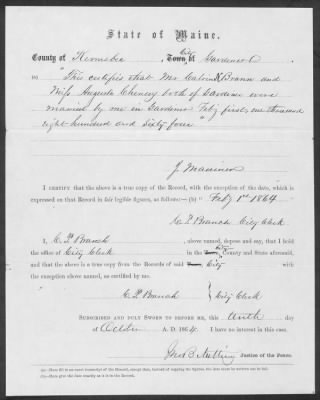 State of Maine.
County of Kennebec City Town of Gardiner
(a) "This certifies that Mr Calvin N Brann and
Miss Augusta Chenery both of Gardiner were
married by me in Gardiner Feby first, one thousand
eight hundred and sixty four"
J.
I CERTIFY that the above is a true copy of the Record, with the exception of the date, which is
expressed on that Record in fair legible figures, as follows:—(b) "Feby 1st 1864
C. P. Branch City Clerk
I, C. P. Branch, above named, depose and say, that I hold
the office of City Clerk in the City County and State aforesaid,
and that the above is a true copy from the Records of said City with
the exception above named, as certified by me.
C. P. Branch } City Clerk
SUBSCRIBED AND DULY SWORN TO BEFORE ME, this day
of October A. D. 1864. I have no interest in this case.
Justice of the Peace.
(a)—Here fill in an exact transcript of the Record, except that, instead of copying the figures, the date must be written out in full.
(b)—Here give the date exactly as it is in the Record.